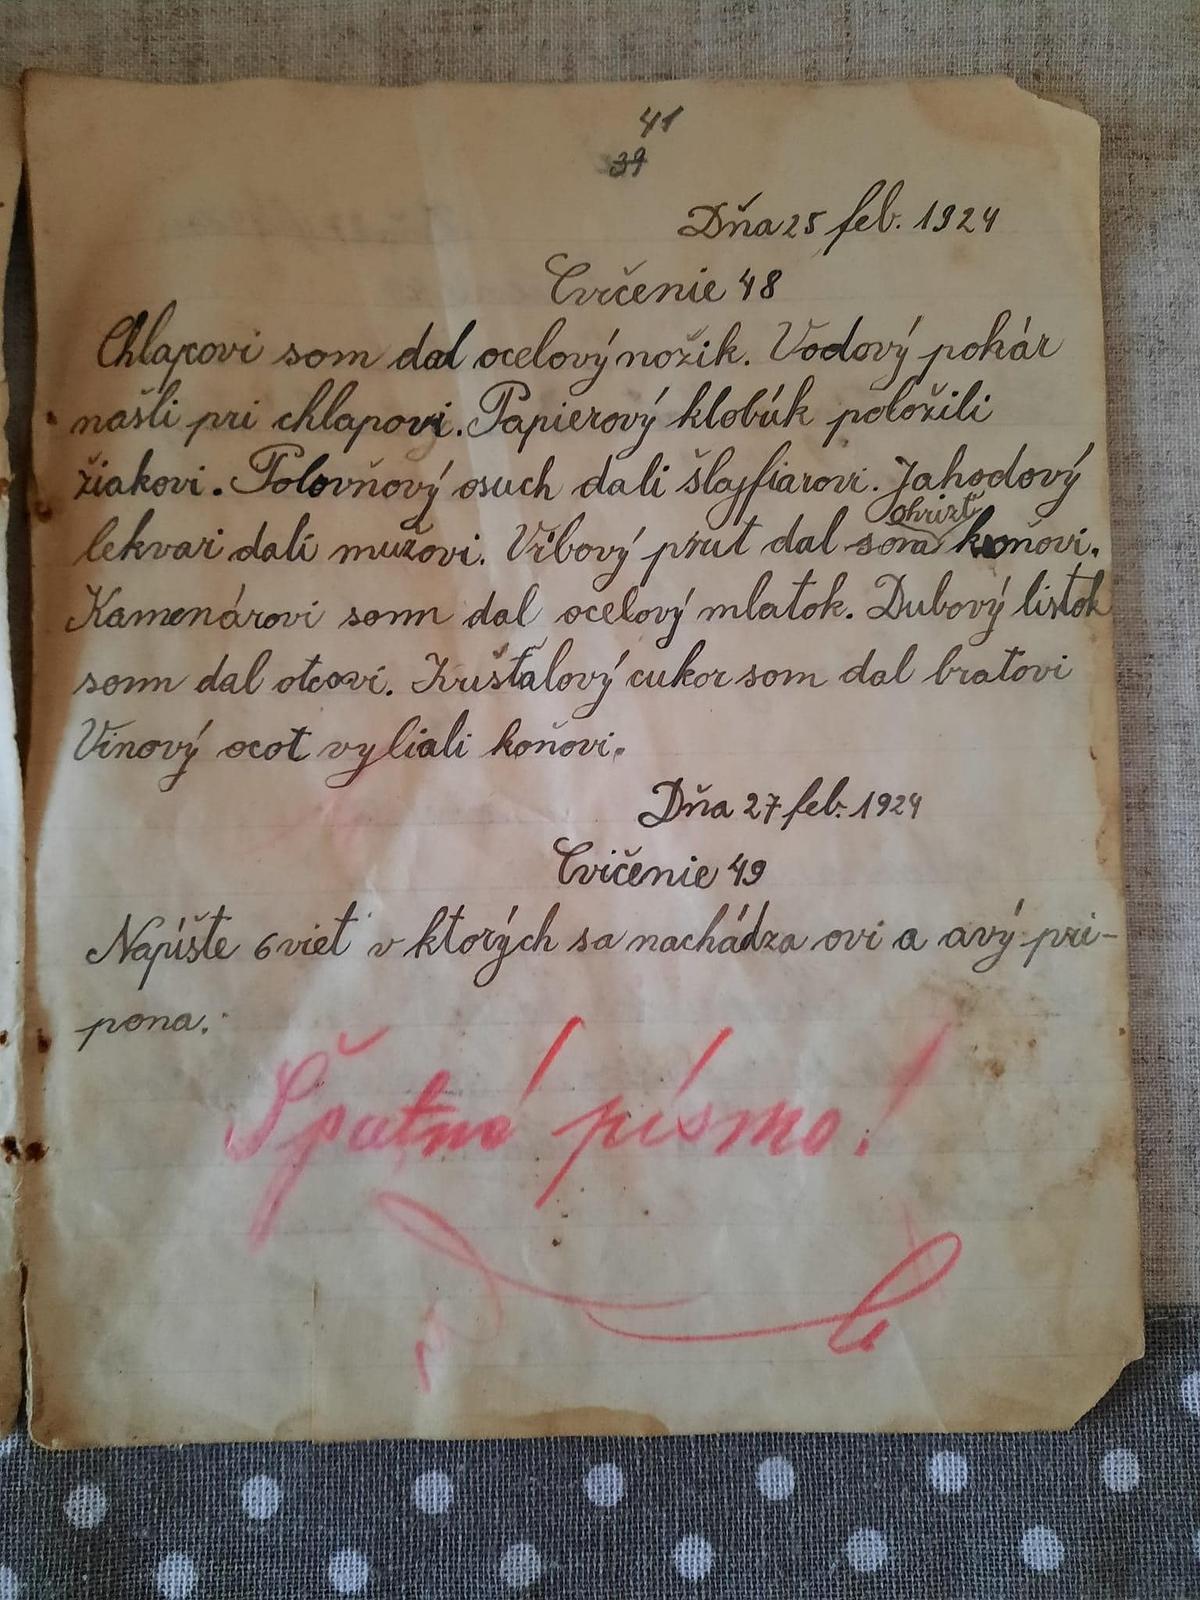 41
39
Dňa 25 feb. 1924
Cvičenie 48
Chlapcovi som dal ocelový nožik. Vodový pohár
našli pri chlapovi. Papierový klobúk položili
žiakovi. Polovňový osuch dali šlajfiarovi. Jahodový
ohrizť
lekvar dali mužovi. Vŕbový prut dal som koňovi.
Kamenárovi som dal ocelový mlatok. Dubový listok
som dal otcovi. Krištalový cukor som dal bratovi
Vinový ocot vyliali koňovi.
Dňa 27 feb. 1924
Cvičenie 49
Napíšte 6 viet v ktorých sa nachádza ovi a avý pri-
pona.
Špatné písmo!